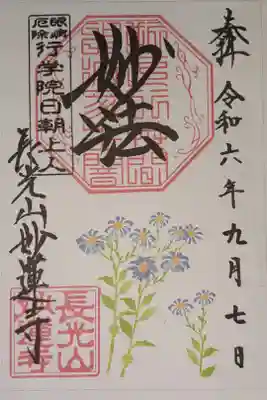 奉拝
令和六年九月七日
妙法
眼病
厄除
行学院日朝上人
長光山妙蓮寺
長光山
妙蓮寺